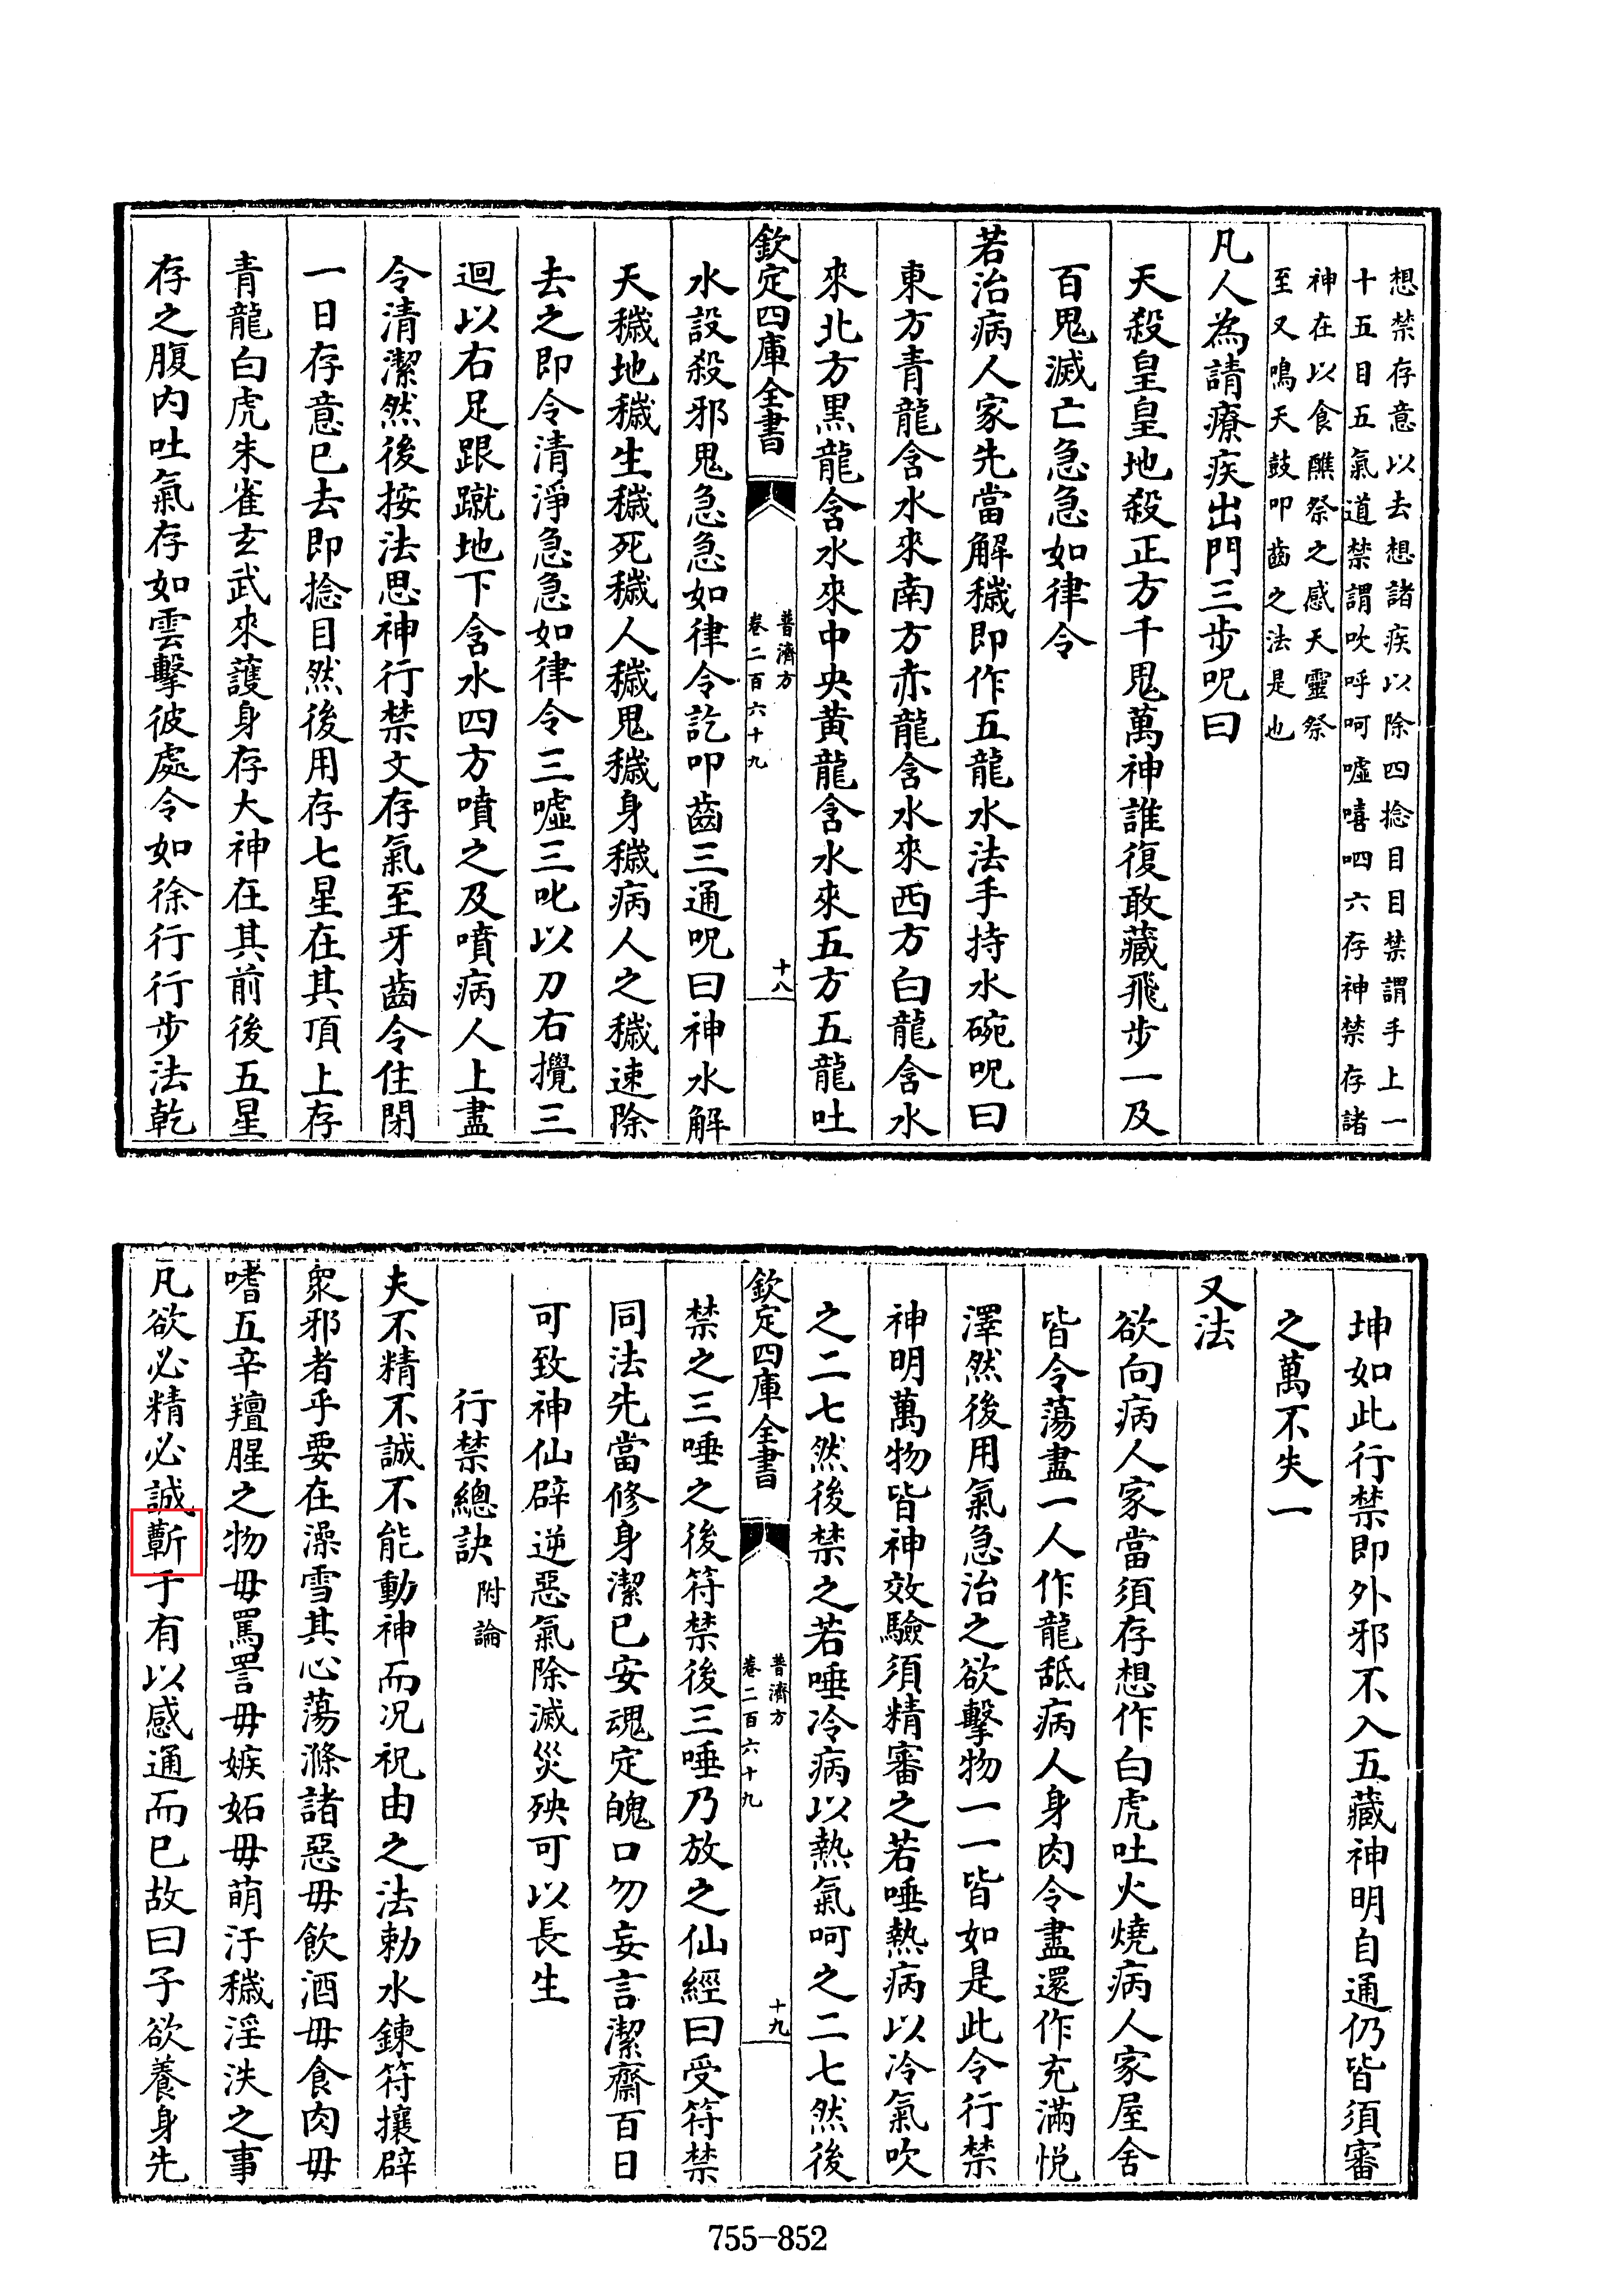 想禁存意以去想諸疾以除四捻目目禁謂手上一
十五目五氣道禁謂吹呼呵噓嘻呬六存神禁存諸
神在以食醮祭之感天靈祭
至又鳴天鼓叩齒之法是也
凡人為請療疾出門三步呪曰
天殺皇皇地殺正方千鬼萬神誰復敢藏飛步一及
百鬼滅亡急急如律令
若治病人家先當解穢即作五龍水法手持水碗呪曰
東方青龍含水來南方赤龍含水來西方白龍含水
來北方黑龍含水來中央黃龍含水來五方五龍吐
欽定四庫全書
普濟方
卷二百六十九
十八
水設殺邪鬼急急如律令訖叩齒三通呪曰神水解
天穢地穢生穢死穢人穢鬼穢身穢病人之穢速除
去之即令清淨急急如律令三噓三叱以刀右攪三
迴以右足跟蹴地下含水四方噴之及噴病人上盡
令清潔然後按法思神行禁文存氣至牙齒令住閉
一日存意已去即捻目然後用存七星在其頂上存
青龍白虎朱雀玄武來護身存大神在其前後五星
存之腹内吐氣存如雲擊彼處令如徐行行步法乾
坤如此行禁即外邪不入五藏神明自通仍皆須審
之萬不失一
又法
欲向病人家當須存想作白虎吐火燒病人家屋舍
皆令蕩盡一人作龍舐病人身肉令盡還作充滿悅
澤然後用氣急治之欲擊物一一皆如是此令行禁
神明萬物皆神效驗須精審之若唾熱病以冷氣吹
之二七然後禁之若唾冷病以熱氣呵之二七然後
欽定四庫全書
普濟方
卷二百六十九
十九
禁之三唾之後符禁後三唾乃放之仙經曰受符禁
同法先當修身潔已安魂定魄口勿妄言潔齋百日
可致神仙辟逆惡氣除滅災殃可以長生
行禁總訣附論
夫不精不誠不能動神而况祝由之法勅水鍊符攘辟
衆邪者乎要在澡雪其心蕩滌諸惡毋飲酒毋食肉毋
嗜五辛羶腥之物毋罵詈毋嫉妬毋萌汙穢淫泆之事
凡欲必精必誠蘄于有以感通而已故曰子欲養身先
755-852